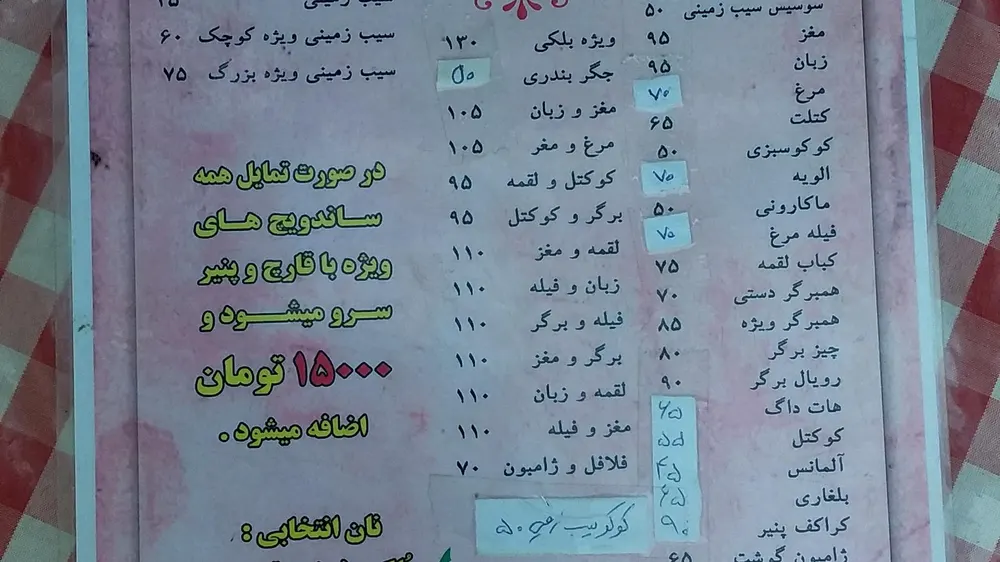 سوسیس سیب زمینی ۵۰
مغز ۹۵
زبان ۹۵
مرغ ۷۰
کتلت ۶۵
کوکوسبزی ۵۰
الویه ۷۰
ماکارونی ۵۰
فیله مرغ ۷۰
کباب لقمه ۷۵
همبرگر دستی ۷۰
همبرگر ویژه ۸۵
چیز برگر ۸۰
رویال برگر ۹۰
هات داگ ۶۵
کوکتل ۵۵
آلمانس
بلغاری
کراکف پنیر ۹۰
ژامبون گوشت ۶۵
ویژه بلکی ۱۳۰
جگر بندری ۵۰
مغز و زبان ۱۰۵
مرغ و مغر ۱۰۵
کوکتل و لقمه ۹۵
برگر و کوکتل ۹۵
لقمه و مغز ۱۱۰
زبان و فیله ۱۱۰
فیله و برگر ۱۱۰
برگر و مغز ۱۱۰
لقمه و زبان ۱۱۰
مغز و فیله ۱۱۰
فلافل و ژامبون ۷۰
کوکو سیب زمینی ۵۰
سیب زمینی
سیب زمینی ویژه کوچک ۶۰
سیب زمینی ویژه بزرگ ۷۵
در صورت تمایل همه
ساندویچ های
ویژه با قارچ و پنیر
سرو میشود و
۱۵۰۰۰ تومان
اضافه میشود .
نان انتخابی :